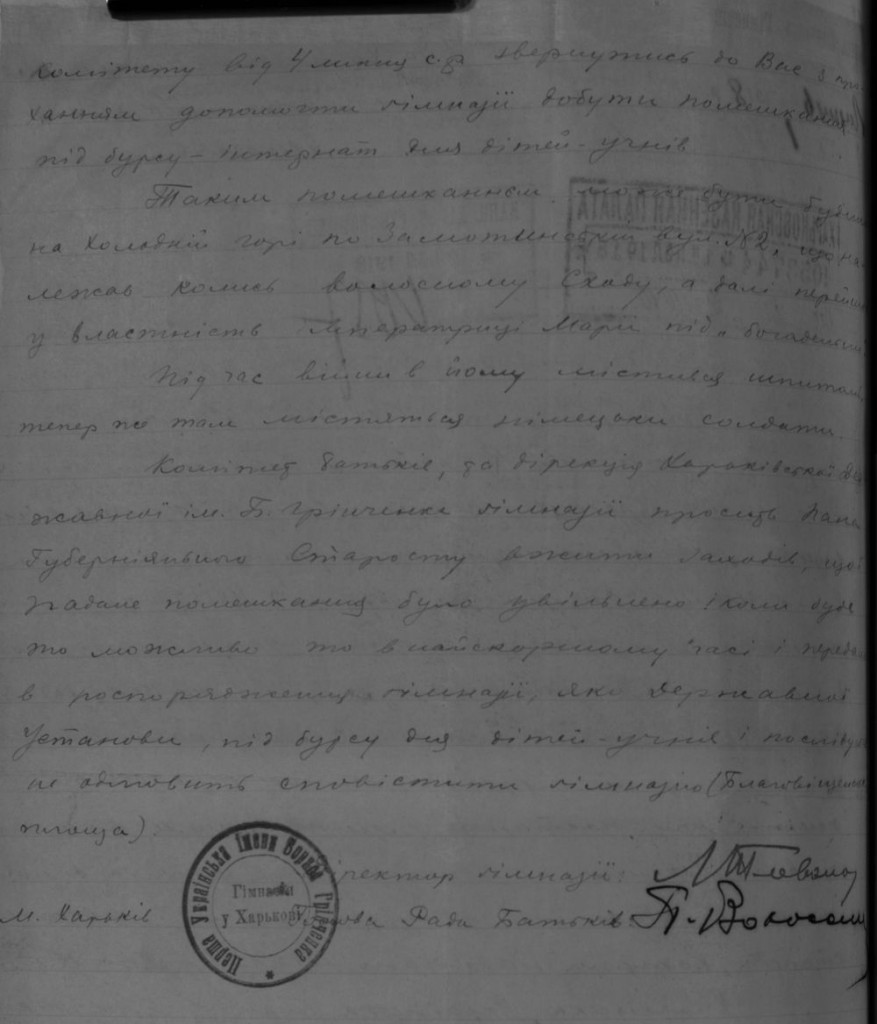 Комітету від 4 липня с.р. звернутись до Вас з про-
ханням допомогти гімназії добути помешкання
під бурсу – інтернат для дітей – учнів
Таким помешканням може бути будин
на Холодній горі по Замотинській вул. №2, що на-
лежав колись волосному Сходу, а далі перейшов
у власність Імператриці Марії під „богадельню
Під час війни в йому містився шпиталь
тепер же там містяться німецьки солдати.
Комітет батьків, та дірекція Харьківської Дер
жавної ім. Б. Грінченка гімназії просить Пана
Губерніяльного Старосту вжити заходів, щоб
згадане помешкання було увільнено і коли буде
то можливо то в найскоршому часі і передано
в роспорядження гімназії, яко Державної
Установи, під бурсу для дітей – учнів і послідуюче
не одмовить сповістити гімназію (Благовіщенська
площа)
Директор гімназії:
м. Харьків Голова Ради Батьків П. Волос
Перша Українська імени Бориса Грінченка
Гімназія
у Харькові